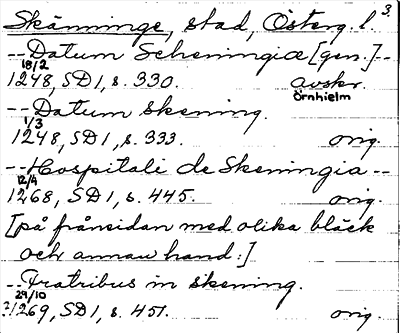 Skänninge, stad, Österg. l. 3.
-- Datum Scheningiæ [gen.] --
18/2
1248, SD 1, s. 330. avskr.
Örnhielm
-- Datum Skening.
1/3
1248, SD 1, s. 333. orig.
-- Hospitali de Skeningia --
12/4
1268, SD 1, s. 445. orig.
[på frånsidan med olika bläck
och annan hand:]
-- Fratribus in skening.
29/10
?1269, SD 1, s. 451. orig.